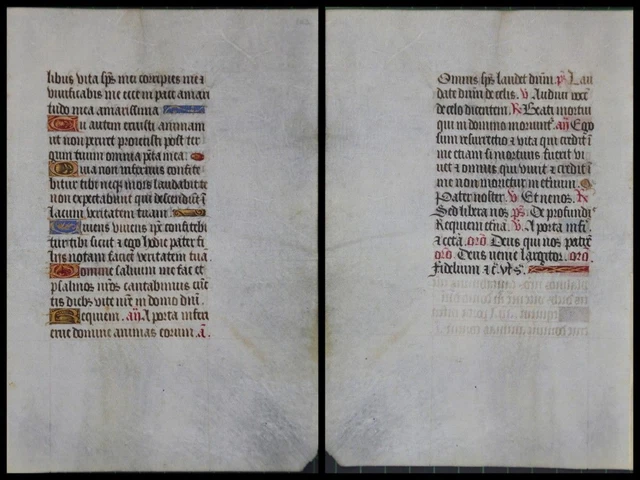 libus vita sp̄s mei corripies me ⁊
vivificabis me ecce in pace amari
tudo mea amarissima
Tu autem eruisti animam
ut non periret proiecisti post ter
gum tuum omnia pc̄ta mea.
Quia non infernus confite
bitur tibi neqꝫ mors laudabit te
non expectabunt qui descendūt ī
lacum veritatem tuam
Vivens vivens ip̄e confitebi
tur tibi sicut ⁊ ego hodie pater fi
liis notam faciet veritatem tuā
Domine salvum me fac et
psalmos nr̄os cantabimus cūc
tis diebꝰ vite nr̄e in domo dn̄i.
Requiem. an̄ A porta inferi
erue domine animas eorum. a.
Omnis sp̄s laudet dn̄m. ps̄ Lau
date dn̄m de celis. v̄ Audivi vocē
de celo dicentem. R̄ Beati mortui
qui in domino moriunt͛. an̄ Ego
sum resurrectio ⁊ vita qui credit ī
me etiam si mortuus fuerit vi
vet ⁊ omnis qui vivit ⁊ credit ī
me non morietur in et̄num.
Pater noster. v̄ Et ne nos. R̄
Sed libera nos ps̄. De profundis
Requiem et̄nā. v̄. A porta inf̄i
⁊ cetā. or̄o. Deus qui nos patrē
or̄o. Deus venie largitor. or̄o.
Fidelium ⁊ c̄. vt sͣ.